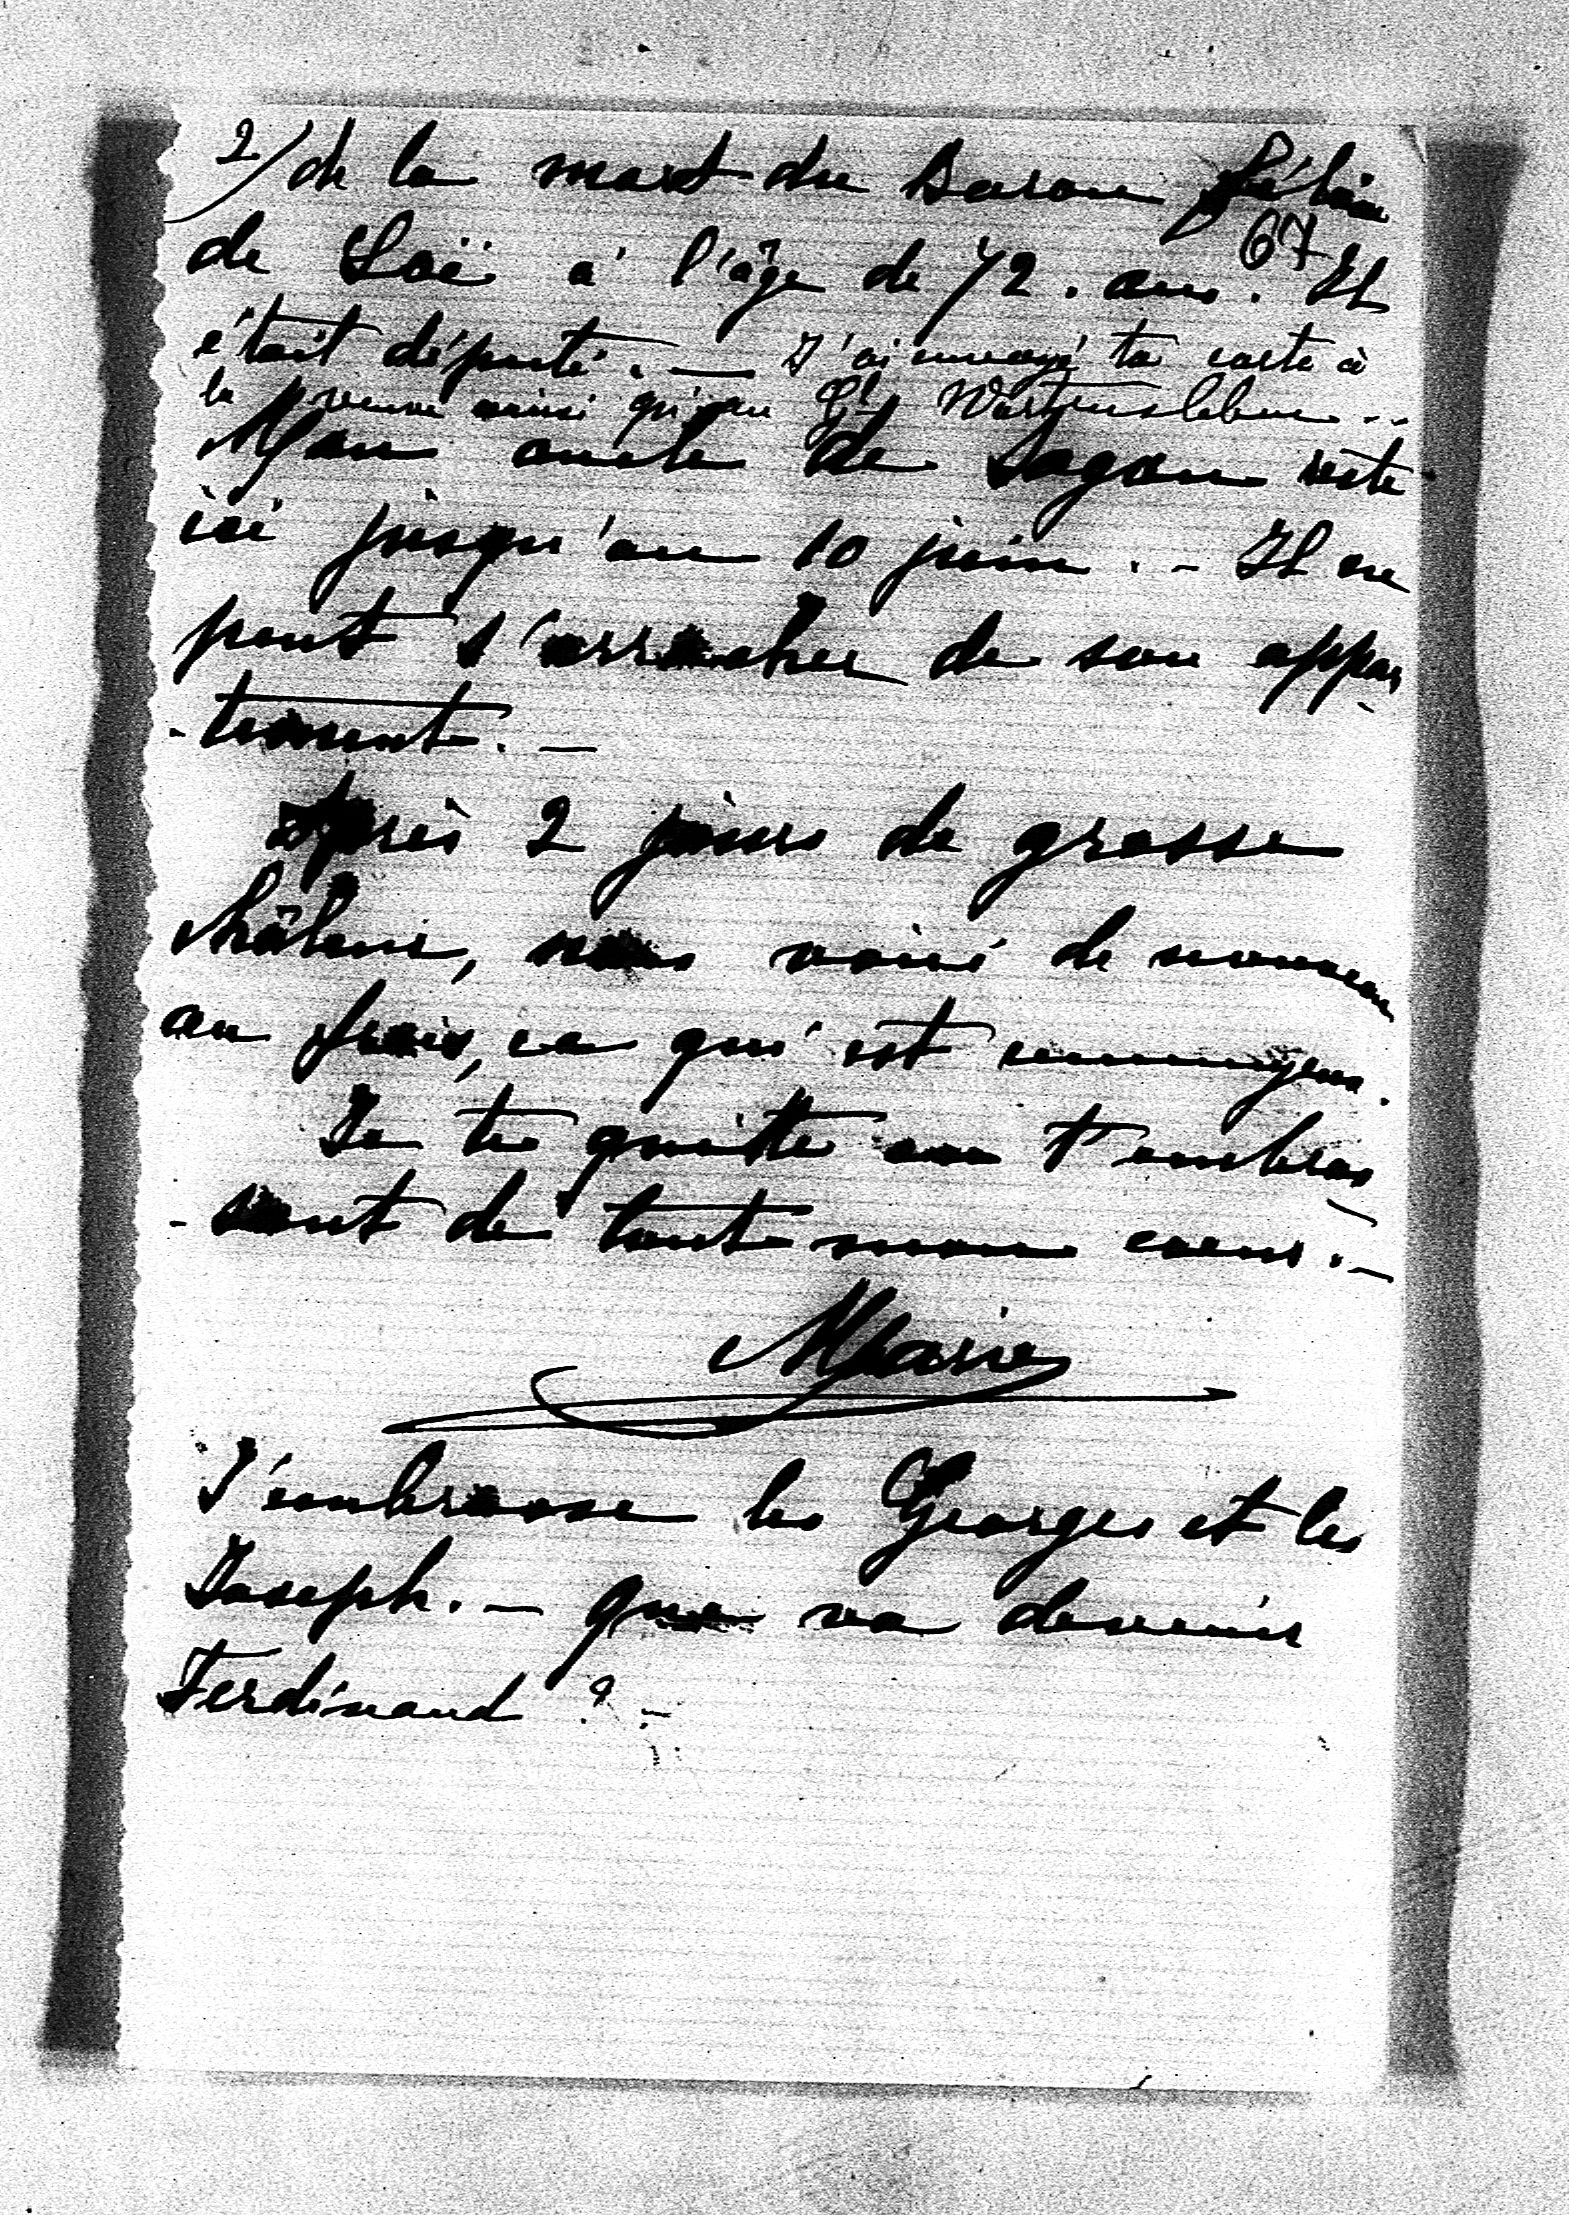 2/ de la mort du Baron Félix
67
de Loë à l'âge de 72. ans. Il
était député. — J'ai envoyé ta carte à
la veuve ainsi qu'au Gl Wartensleben..
Mon oncle de Sagan reste
ici jusqu'au 10 juin. - Il ne
peut s'arracher de son appar
-tement. —
Après 2 jours de grosse
châleur, nous voici de nouveau
au frais, ce qui est ennuyeux.
Je te quitte en t'embras
-sant de tout mon coeur. —
Marie
J'embrasse les Georges et les
Joseph. — que va devenir
Ferdinand ? -